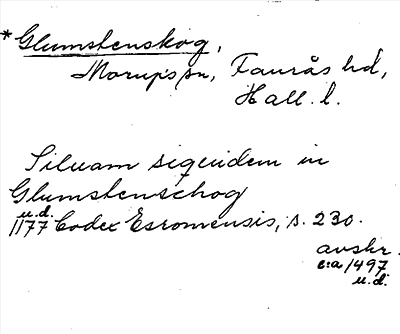 *Glumstenskog,
Morups sn, Faurås hd,
Hall. l.
Siluam siquidem in
Glumstenschog
u.d.
1177 Codex Esromensis, s. 230.
avskr.
c:a 1497
u.d.